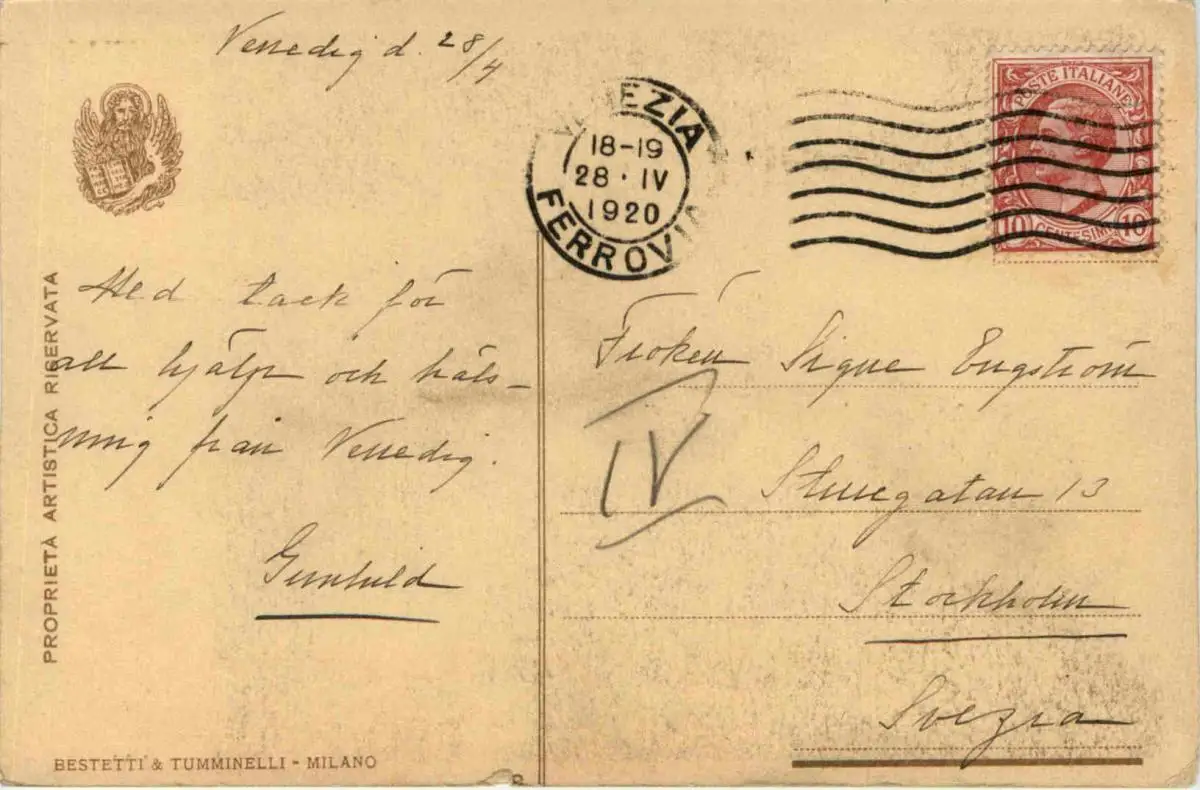 Venedig d. 28/4
VENEZIA
18-19
28 · IV
1920
FERROVIA
POSTE ITALIANE
10 CENTESIMI 10
Med tack för
all hjälp och häls-
ning från Venedig.
Gunhild
Fröken Signe Engström
IV
Sturegatan 13
Stockholm
Svezia
PROPRIETÀ ARTISTICA RISERVATA
BESTETTI & TUMMINELLI - MILANO